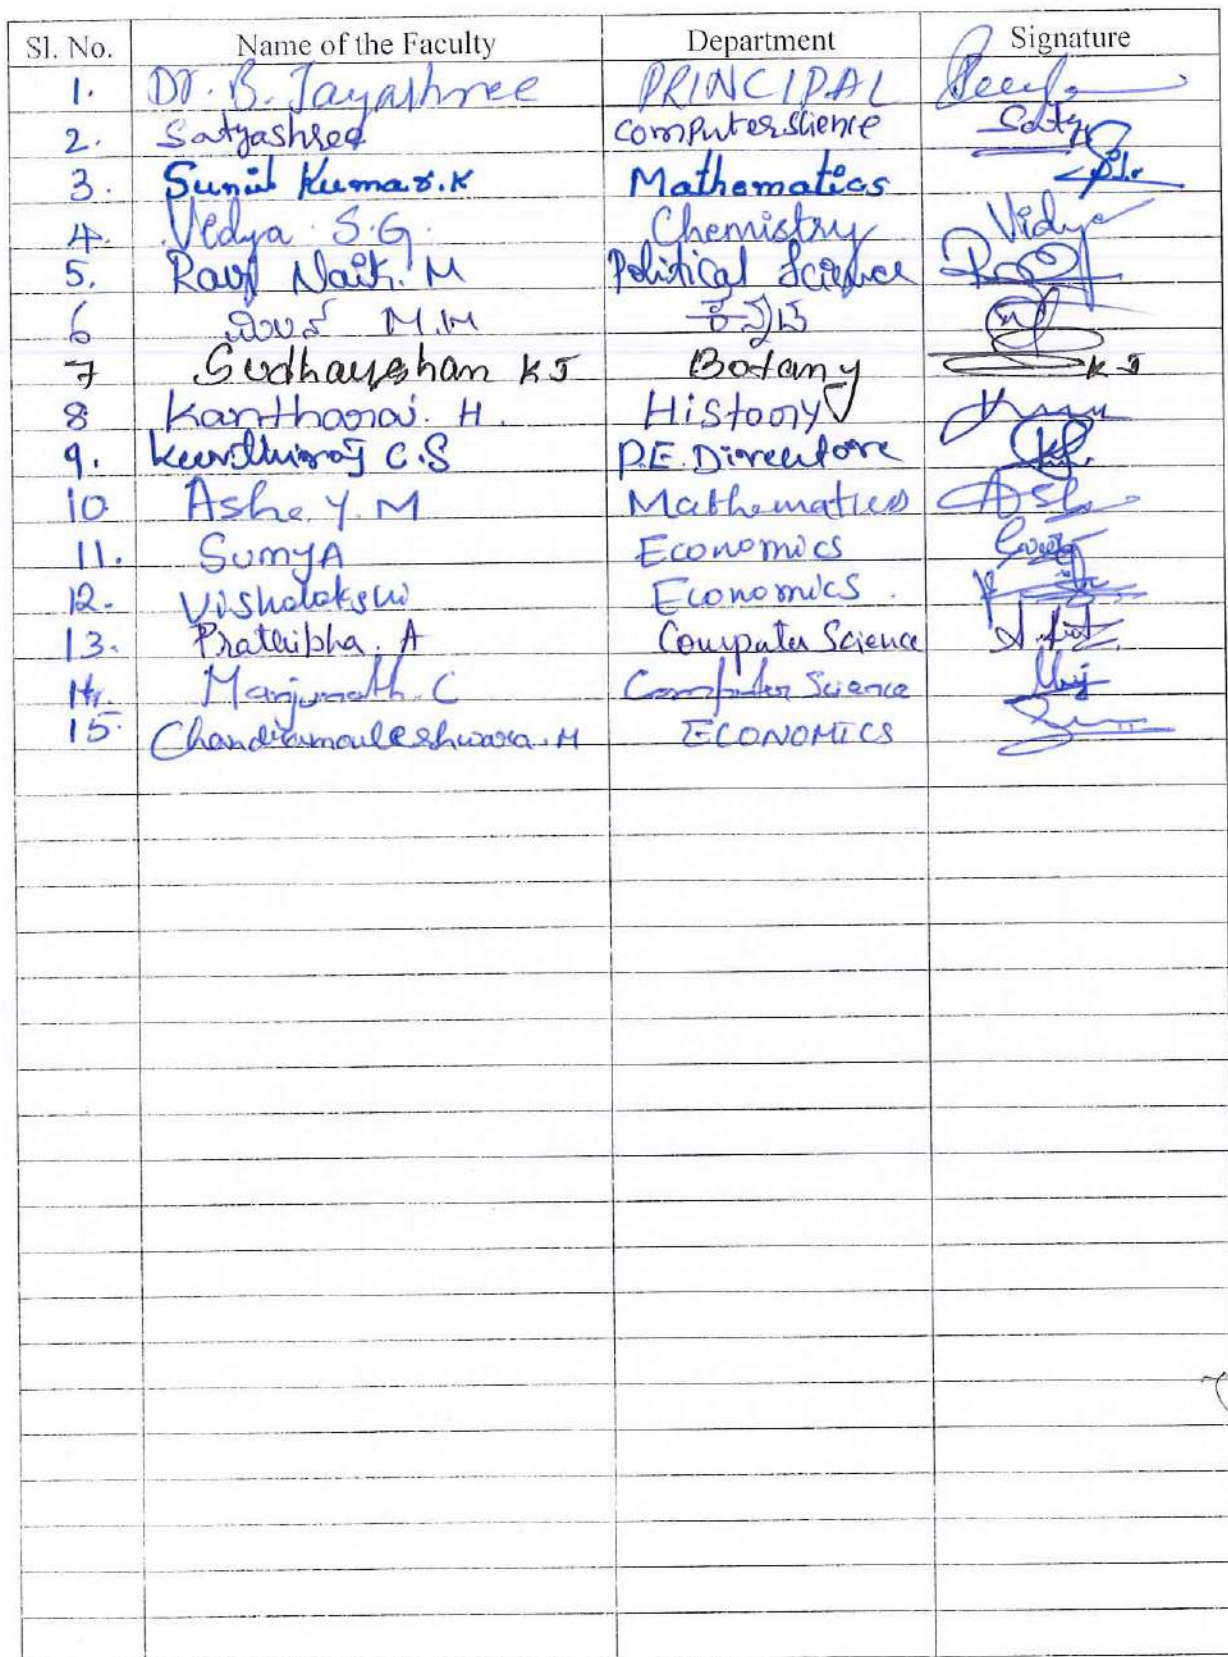 Sl. No. Name of the Faculty Department Signature
1. Dr. B. Jayashree PRINCIPAL
2. Satyashree Computer Science Satya
3. Sunil Kumar.K Mathematics
4. Vidya S.G. Chemistry Vidya
5. Ravi Naik. M Political Science
6 M.M ಕನ್ನಡ
7 Sudharshan K J Botany K J
8 Kantharaj. H. History
9. Keerthiraj C.S P.E. Directore
10 Asha Y. M Mathematics Asha
11. Sumy A Economics
12. Vishalakshi Economics.
13. Prathibha. A Computer Science
14. Manjunath. C Computer Science
15. Chandramouleshwara. M ECONOMICS